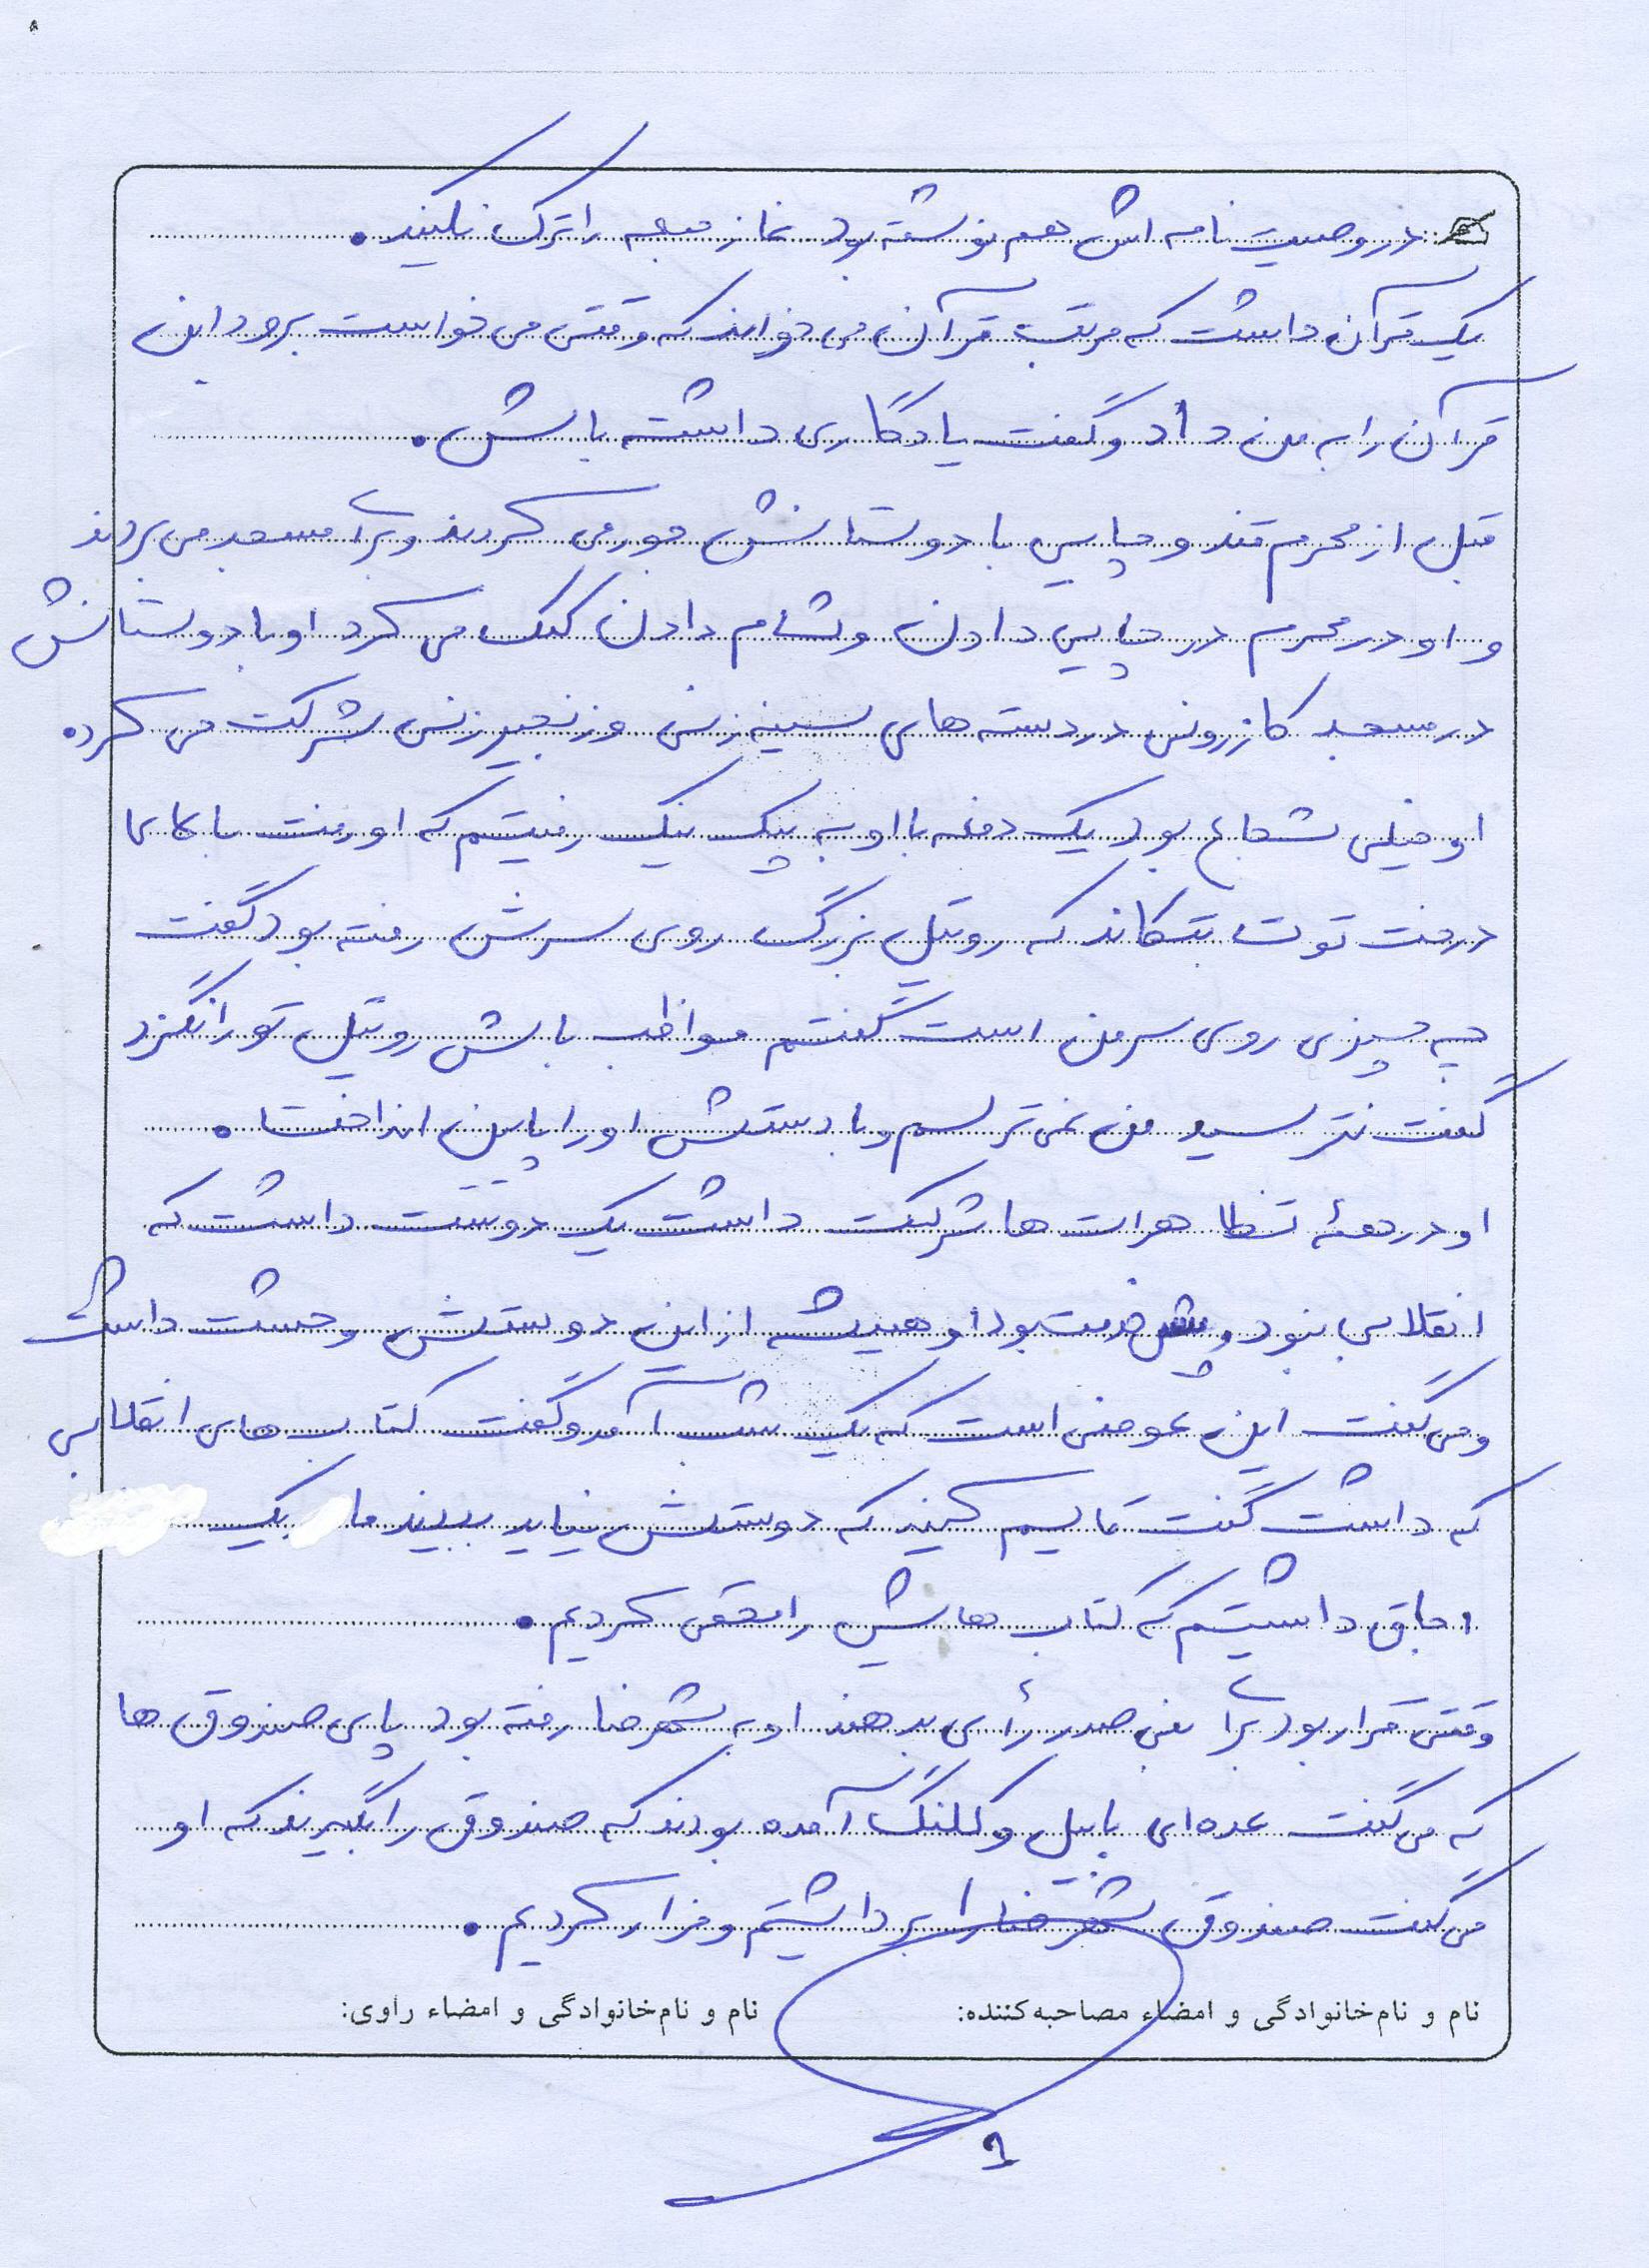 در وصیت نامه اش هم نوشته بود نماز جمعه را ترک نکنید.
یک قرآن داشت که مرتب قرآن می خواند که وقتی می خواست برود این
قرآن را به من داد و گفت یادگاری داشته باش.
قبل از محرم قند و چایی با دوستانش جور می کردند و برای مسجد می بردند
و او در محرم در چایی دادن و شام دادن کمک می کرد او با دوستانش
در مسجد کازرونی در دسته های سینه زنی و زنجیر زنی شرکت می کرده
او خیلی شجاع بود یک دفعه با او به پیک نیک رفتیم که او رفت بالای
درخت توت بتکاند که روتیل بزرگ روی سرش رفته بود گفت
چه چیزی روی سر من است گفتم مواظب باش روتیل تو را نگزد
گفت نترسید من نمی ترسم و با دستش او را پایین انداخت.
او در همۀ تظاهرات ها شرکت داشت یک دوست داشت که
انقلابی نبود و ضدیت بود او همیشه از این دوستش وحشت داشت
و می گفت این عوضی است که یک شب آمد و گفت کتاب های انقلابی
که داشت گفت قایم کنید که دوستش نیاید ببیند ما یک
اجاق داشتیم که کتاب هایش را مخفی کردیم.
وقتی قرار بود برای بنی صدر رأی بدهند او به شهرضا رفته بود پای صندوق ها
که می گفت عده ای با بیل و کلنگ آمده بودند که صندوق را بگیرند که او
می گفت صندوق شهرضا را برداشتیم و فرار کردیم.
نام و نام‌خانوادگی و امضاء مصاحبه‌کننده: نام و نام‌خانوادگی و امضاء راوی: